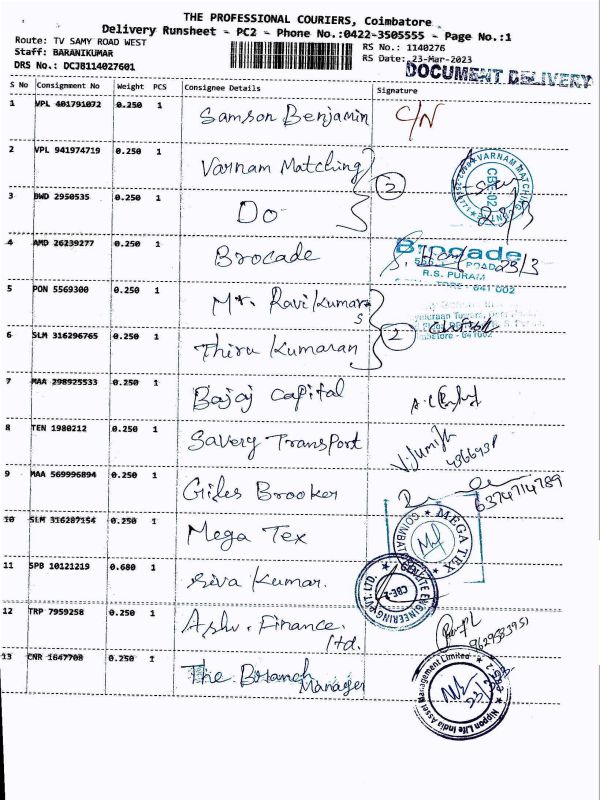 THE PROFESSIONAL COURIERS, Coimbatore
Delivery Runsheet - PC2 - Phone No.:0422-3505555 - Page No.:1
Route: TV SAMY ROAD WEST
RS No.: 1140276
Staff: BARANIKUMAR
RS Date: 23-Mar-2023
DRS No.: DCJB114027601
DOCUMENT DELIVERY
S No Consignment No Weight PCS Consignee Details Signature
1 VPL 401791072 0.250 1 Samson Benjamin C/N
2 VPL 941974719 0.250 1 Varnam Matching
2
VARNAM MATCHING CENTRE
CBE-02
3 BWD 2950535 0.250 1 Do
23/3
4 AMD 26239277 0.250 1 Brocade
Brocade
ROAD 23/3
R.S. PURAM
641 002
5 PON 5569300 0.250 1 Mr. Ravi Kumar
S
2
6 SLM 316296765 0.250 1 Thiru Kumaran
641002
7 MAA 298925533 0.250 1 Bajaj Capital
8 TEN 1980212 0.250 1 Savery Transport
9 MAA 569996894 0.250 1 Giles Brooker
6374714789
10 SLM 316287154 0.250 1 Mega Tex
MEGA TEX
COIMBATORE
11 SPB 10121219 0.680 1 Siva Kumar.
ENGINEERING PVT. LTD.
CBE-2
12 TRP 7959258 0.250 1 Finance.
ltd.
9629583951
13 CNR 1647708 0.250 1 The Branch
Manager
Nippon Life India Asset Management Limited